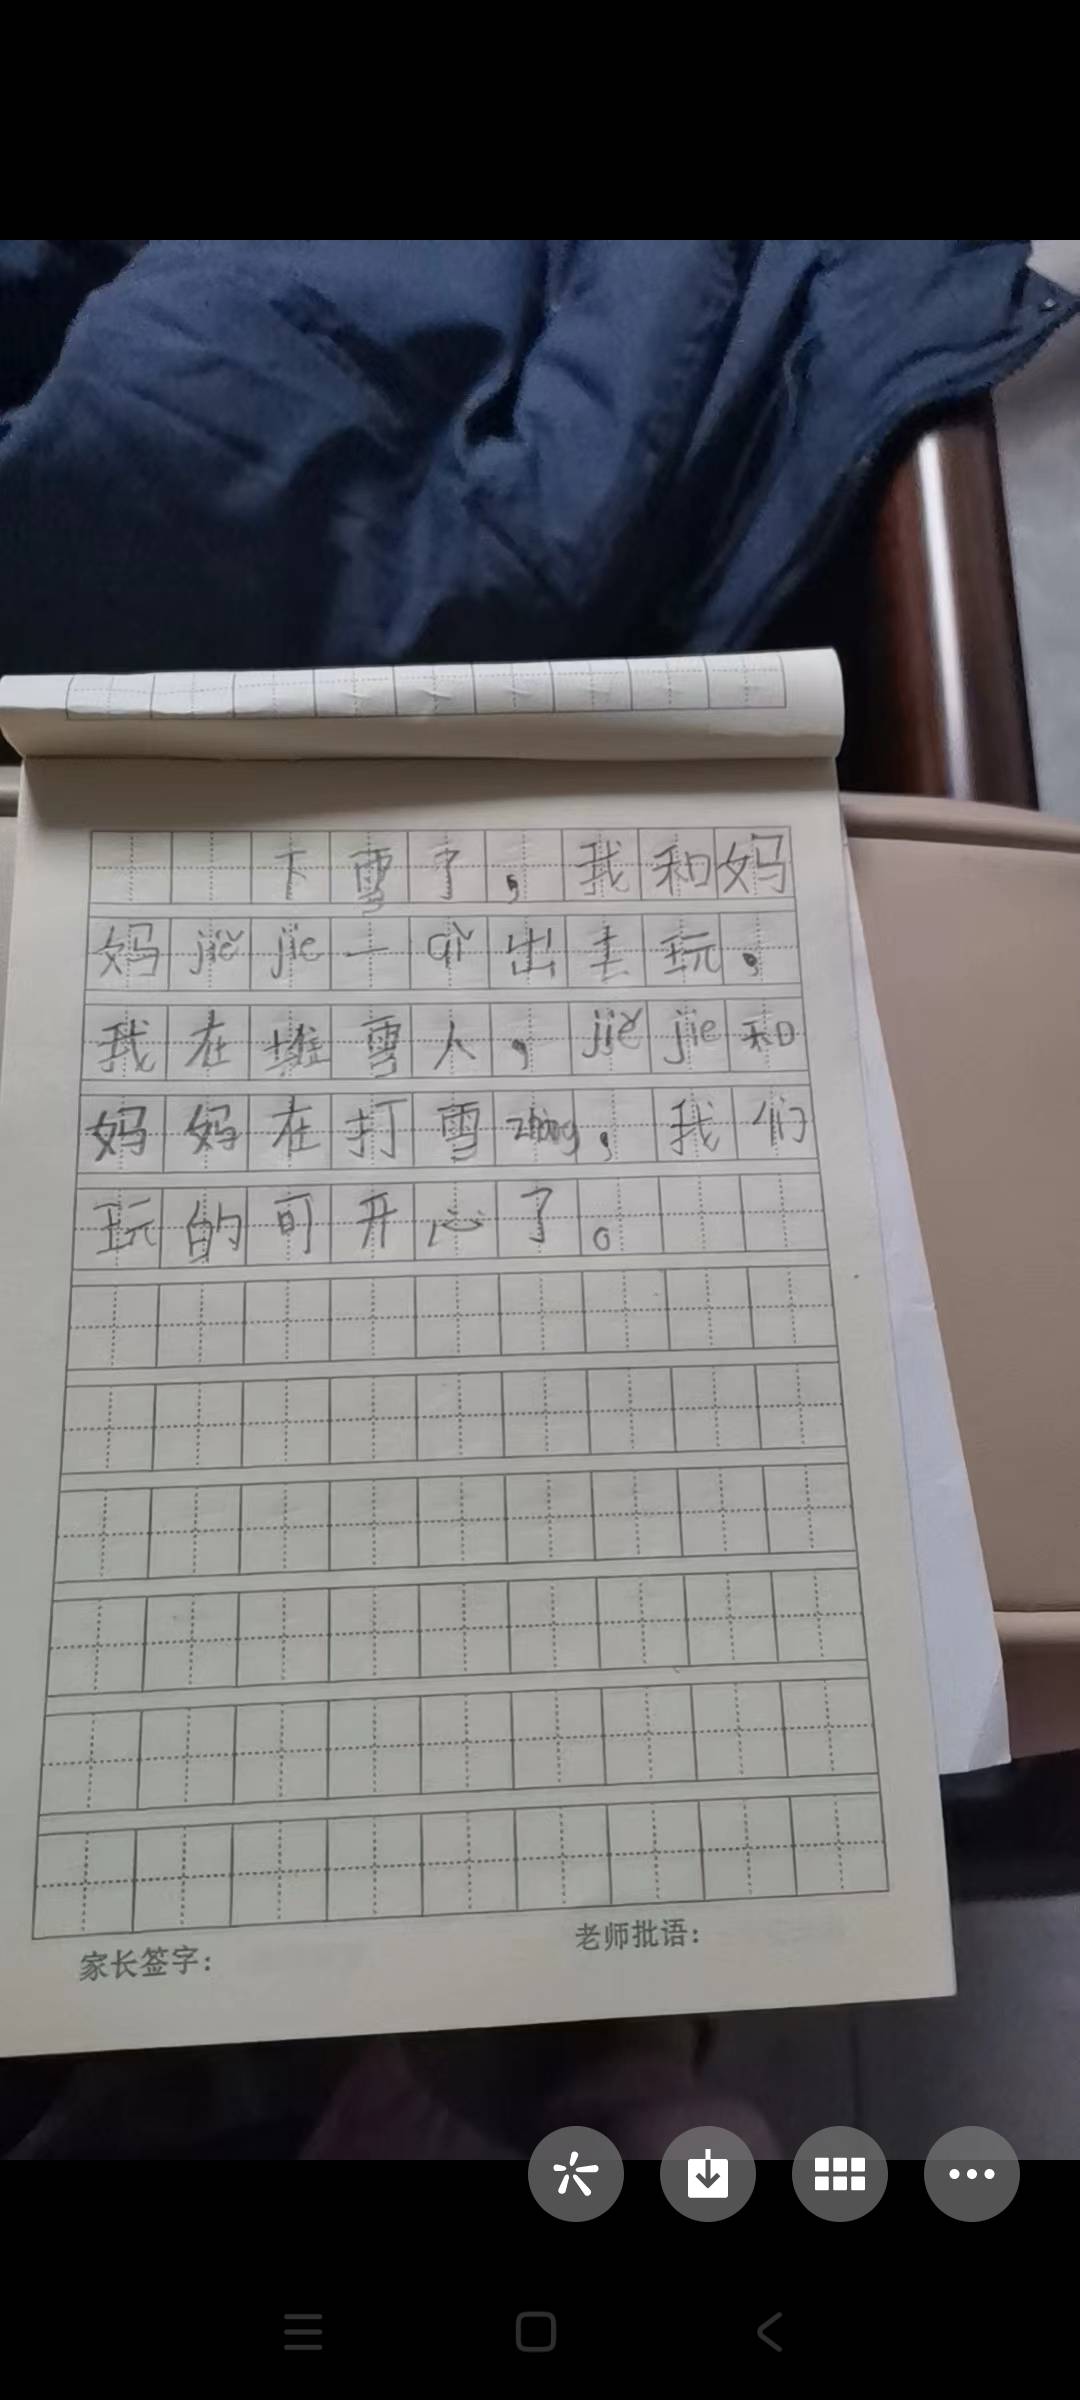 下雪了，我和妈
妈jiějie一qǐ出去玩，
我在堆雪人，jiějie和
妈妈在打雪zhàng，我们
玩的可开心了。
家长签字：
老师批语：